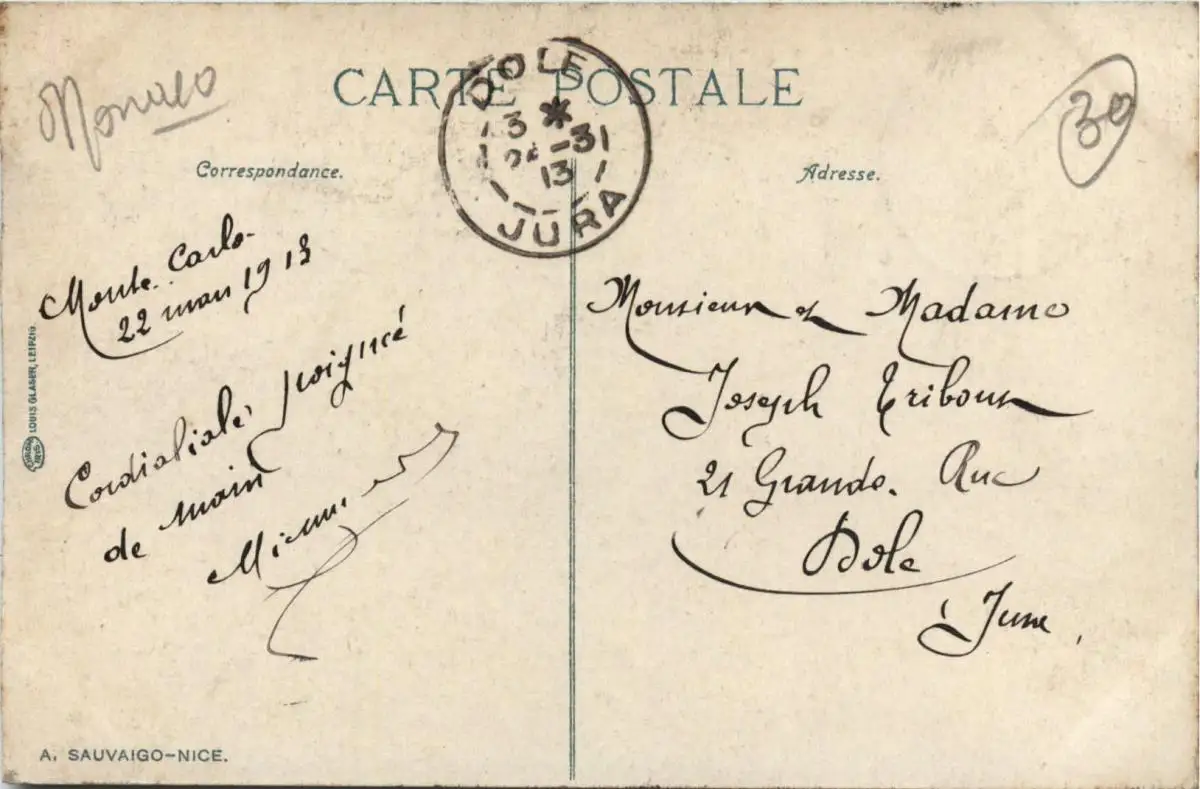 CARTE POSTALE
Monaco
30
DOLE
3 *
24 -3
13
JURA
Correspondance.
Adresse.
Monte-Carlo-
22 mars 1913
Cordialiale poignée
de main
Monsieur et Madame
Joseph Tribout
21 Grande Rue
Dole
Jura
LOUIS GLASER, LEIPZIG.
A. SAUVAIGO-NICE.